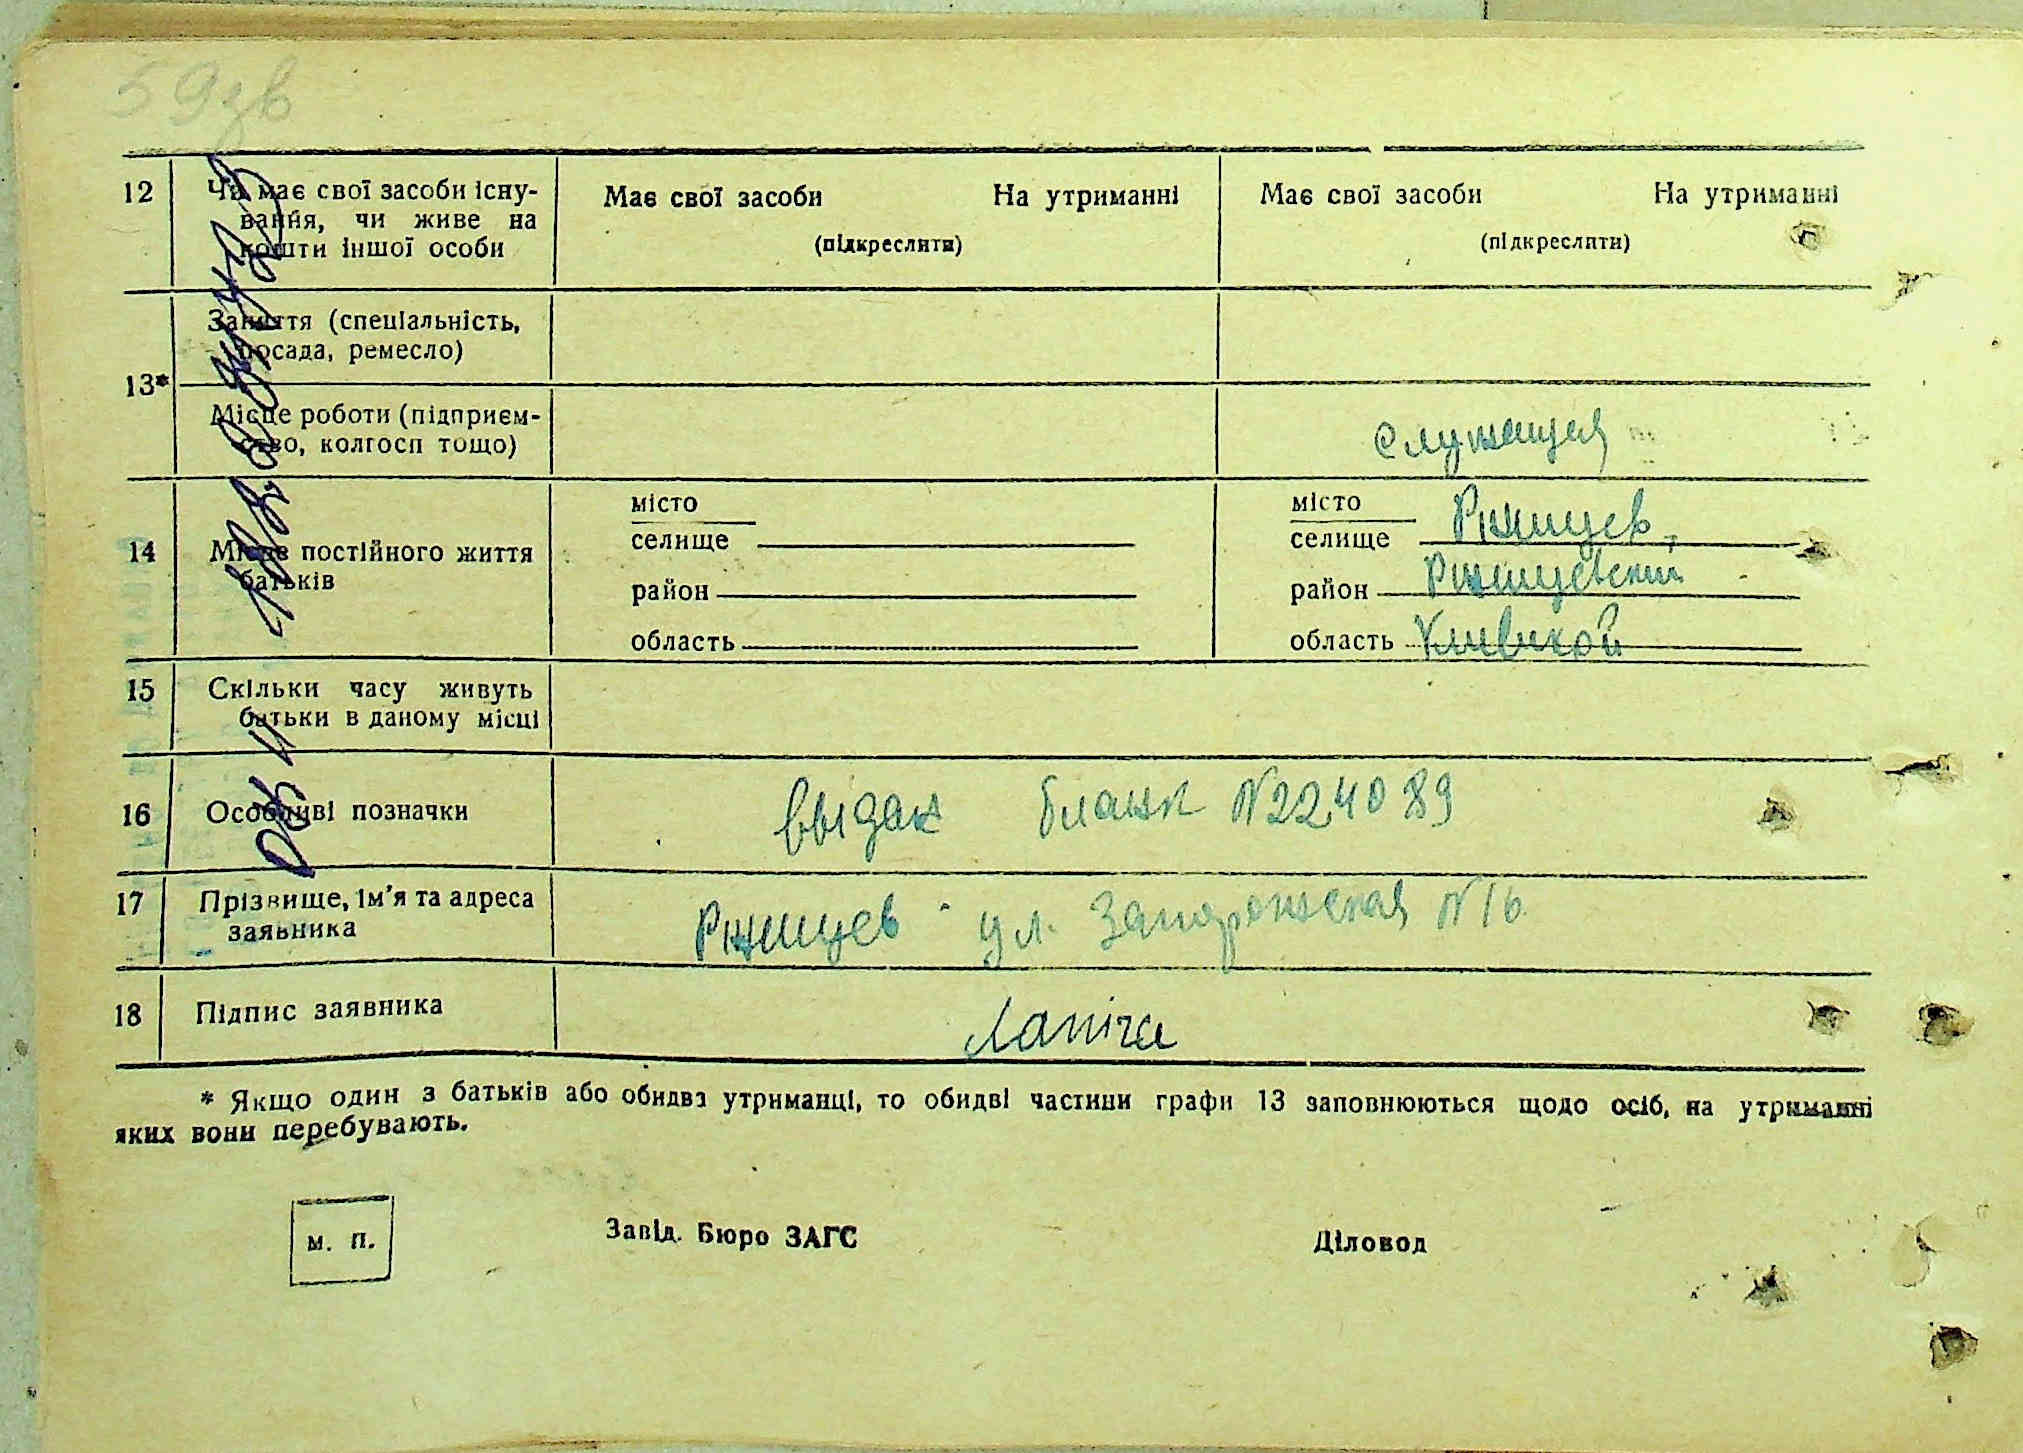 59зв
12 Чи має свої засоби існу- Має свої засоби На утриманні Має свої засоби На утриманні
вання, чи живе на
кошти іншої особи (підкреслити) (підкреслити)
Заняття (спеціальність,
посада, ремесло)
13*
Місце роботи (підприєм-
ство, колгосп тощо) служащая
14 Місце постійного життя
батьків
місто
селище
район
область
місто
селище Ржищев,
район Ржищевский
область Киевской
15 Скільки часу живуть
батьки в даному місці
16 Особливі позначки выдан бланк №224089
17 Прізвище, ім'я та адреса
заявника Ржищев ул. Запорожская №16
18 Підпис заявника Лапіга
* Якщо один з батьків або обидва утриманці, то обидві частини графи 13 заповнюються щодо осіб, на утриманні
яких вони перебувають.
м. п. Завід. Бюро ЗАГС Діловод